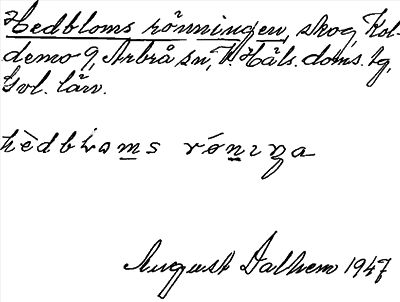 Hedbloms rönningen, skog, Kol-
demo 9, Arbrå sn, V. Häls. doms. tg,
Gvl. län.
hèdbloms rónıŋa
August Dalhem 1947